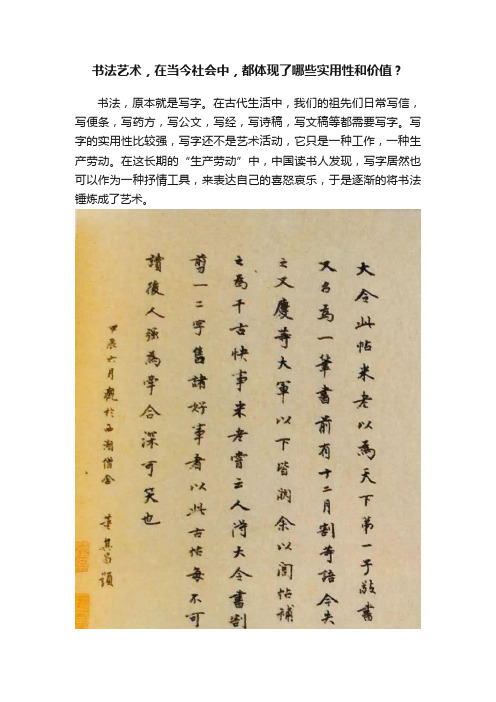 书法艺术，在当今社会中，都体现了哪些实用性和价值？
书法，原本就是写字。在古代生活中，我们的祖先们日常写信，
写便条，写药方，写公文，写经，写诗稿，写文稿等都需要写字。写
字的实用性比较强，写字还不是艺术活动，它只是一种工作，一种生
产劳动。在这长期的“生产劳动”中，中国读书人发现，写字居然也
可以作为一种抒情工具，来表达自己的喜怒哀乐，于是逐渐的将书法
锤炼成了艺术。
大令此帖米老以為天下第一子敬書
又名為一筆書前有十二月割等語今失
之又慶等大軍以下皆闕余以閣帖補
之為千古快事米老嘗云人得大令書割
剪一二字售諸好事者以此古帖每不可
讀後人強為牽合深可笑也
甲辰六月觀於西湖僧舍 董其昌題